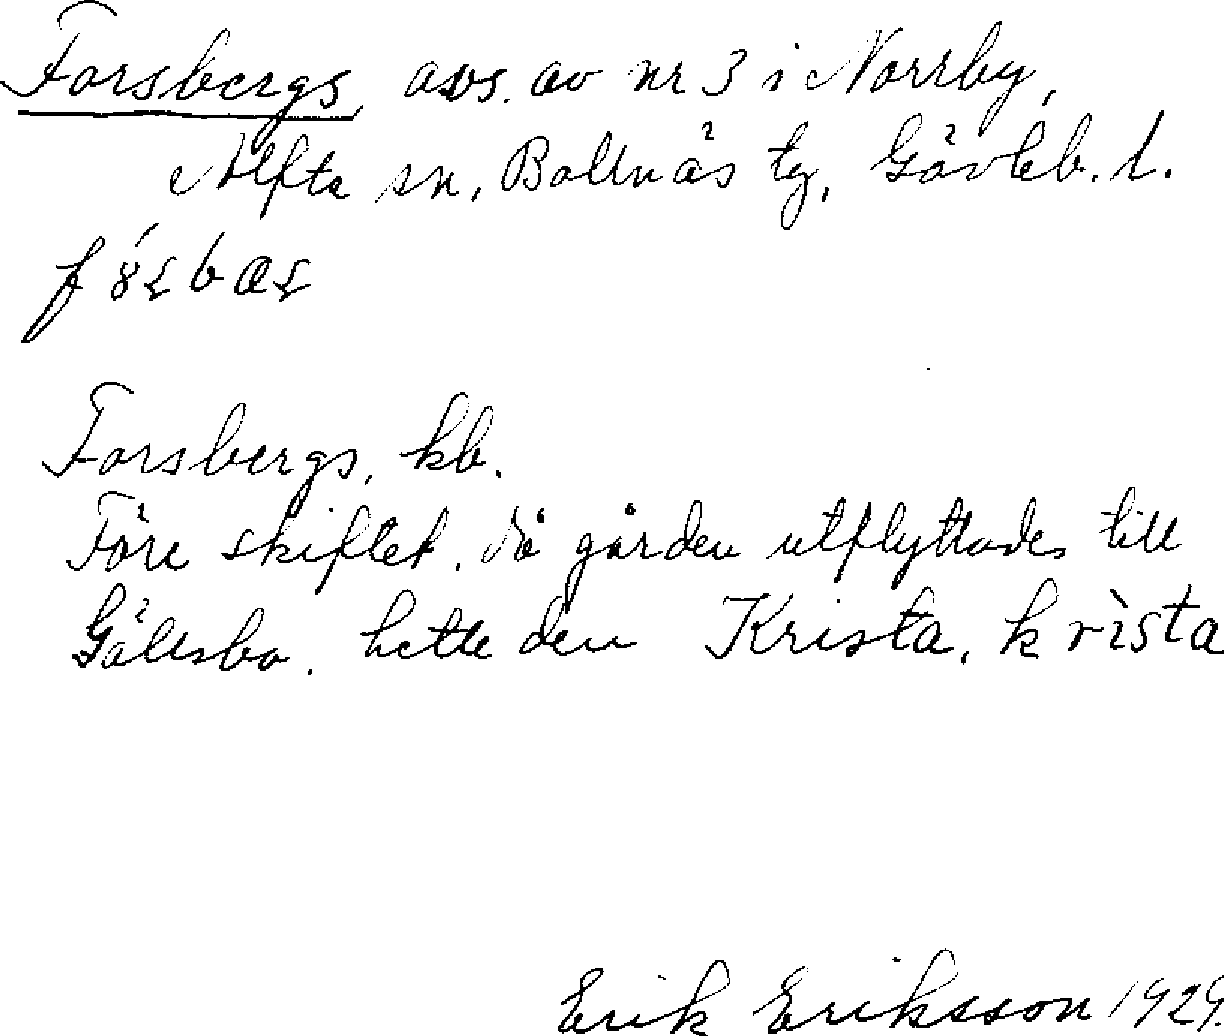 Forsbergs, avs. av nr 3 i Norrby,
Alfta sn, Bollnäs tg, Gävleb. l.
Forsbergs, kb.
Före skiftet, då gården utflyttades till
Gällsbo, hette den Krista, krìsta
Erik Eriksson 1929.